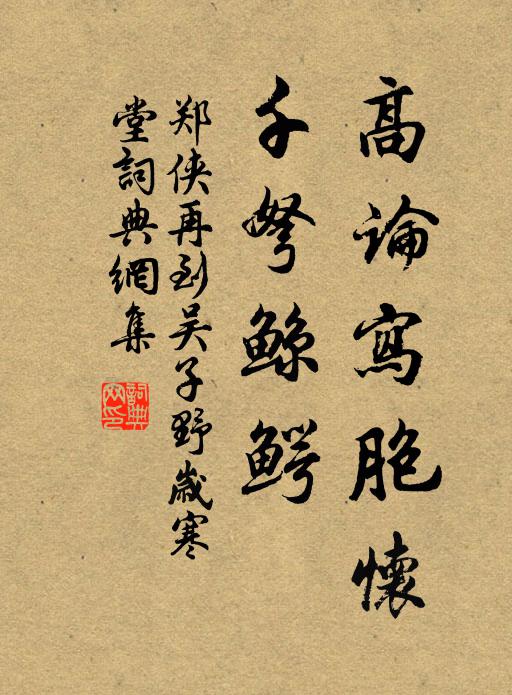 高論寫胞懷
千弩鲸鳄
郑侠再到吴子野歲寒
堂詞典網集
詞典网印